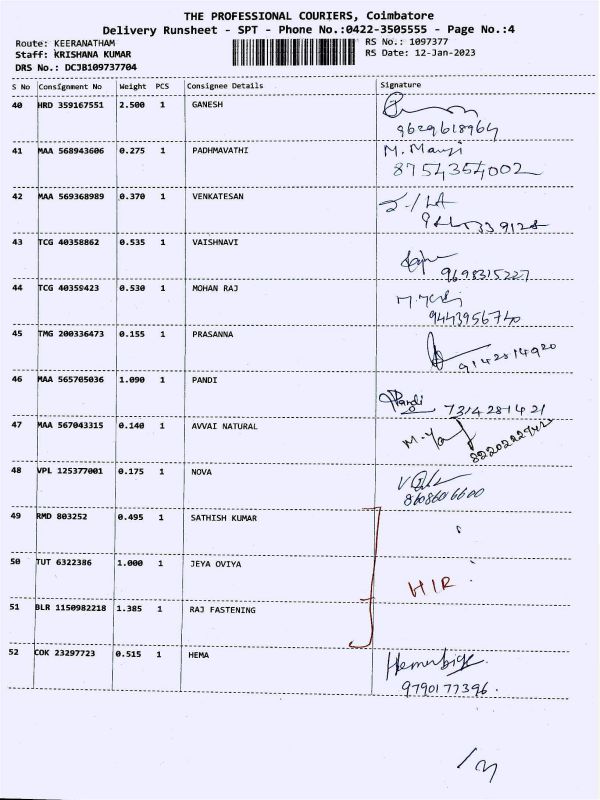 THE PROFESSIONAL COURIERS, Coimbatore
Delivery Runsheet - SPT - Phone No.:0422-3505555 - Page No.:4
Route: KEERANATHAM
RS No.: 1097377
Staff: KRISHANA KUMAR
RS Date: 12-Jan-2023
DRS No.: DCJB109737704
S No Consignment No Weight PCS Consignee Details Signature
40 HRD 359167551 2.500 1 GANESH
9629618964
41 MAA 568943606 0.275 1 PADHMAVATHI M. Manji
8754354002
42 MAA 569368989 0.370 1 VENKATESAN
43 TCG 40358862 0.535 1 VAISHNAVI
9698315227
44 TCG 40359423 0.530 1 MOHAN RAJ
9443956740
45 TMG 200336473 0.155 1 PRASANNA
9142814920
46 MAA 565705036 1.090 1 PANDI
Pandi 7314281421
47 MAA 567043315 0.140 1 AVVAI NATURAL
48 VPL 125377001 0.175 1 NOVA
8608606600
49 RMD 803252 0.495 1 SATHISH KUMAR
50 TUT 6322386 1.000 1 JEYA OVIYA
HIR
51 BLR 1150982218 1.385 1 RAJ FASTENING
52 COK 23297723 0.515 1 HEMA
9790177396.